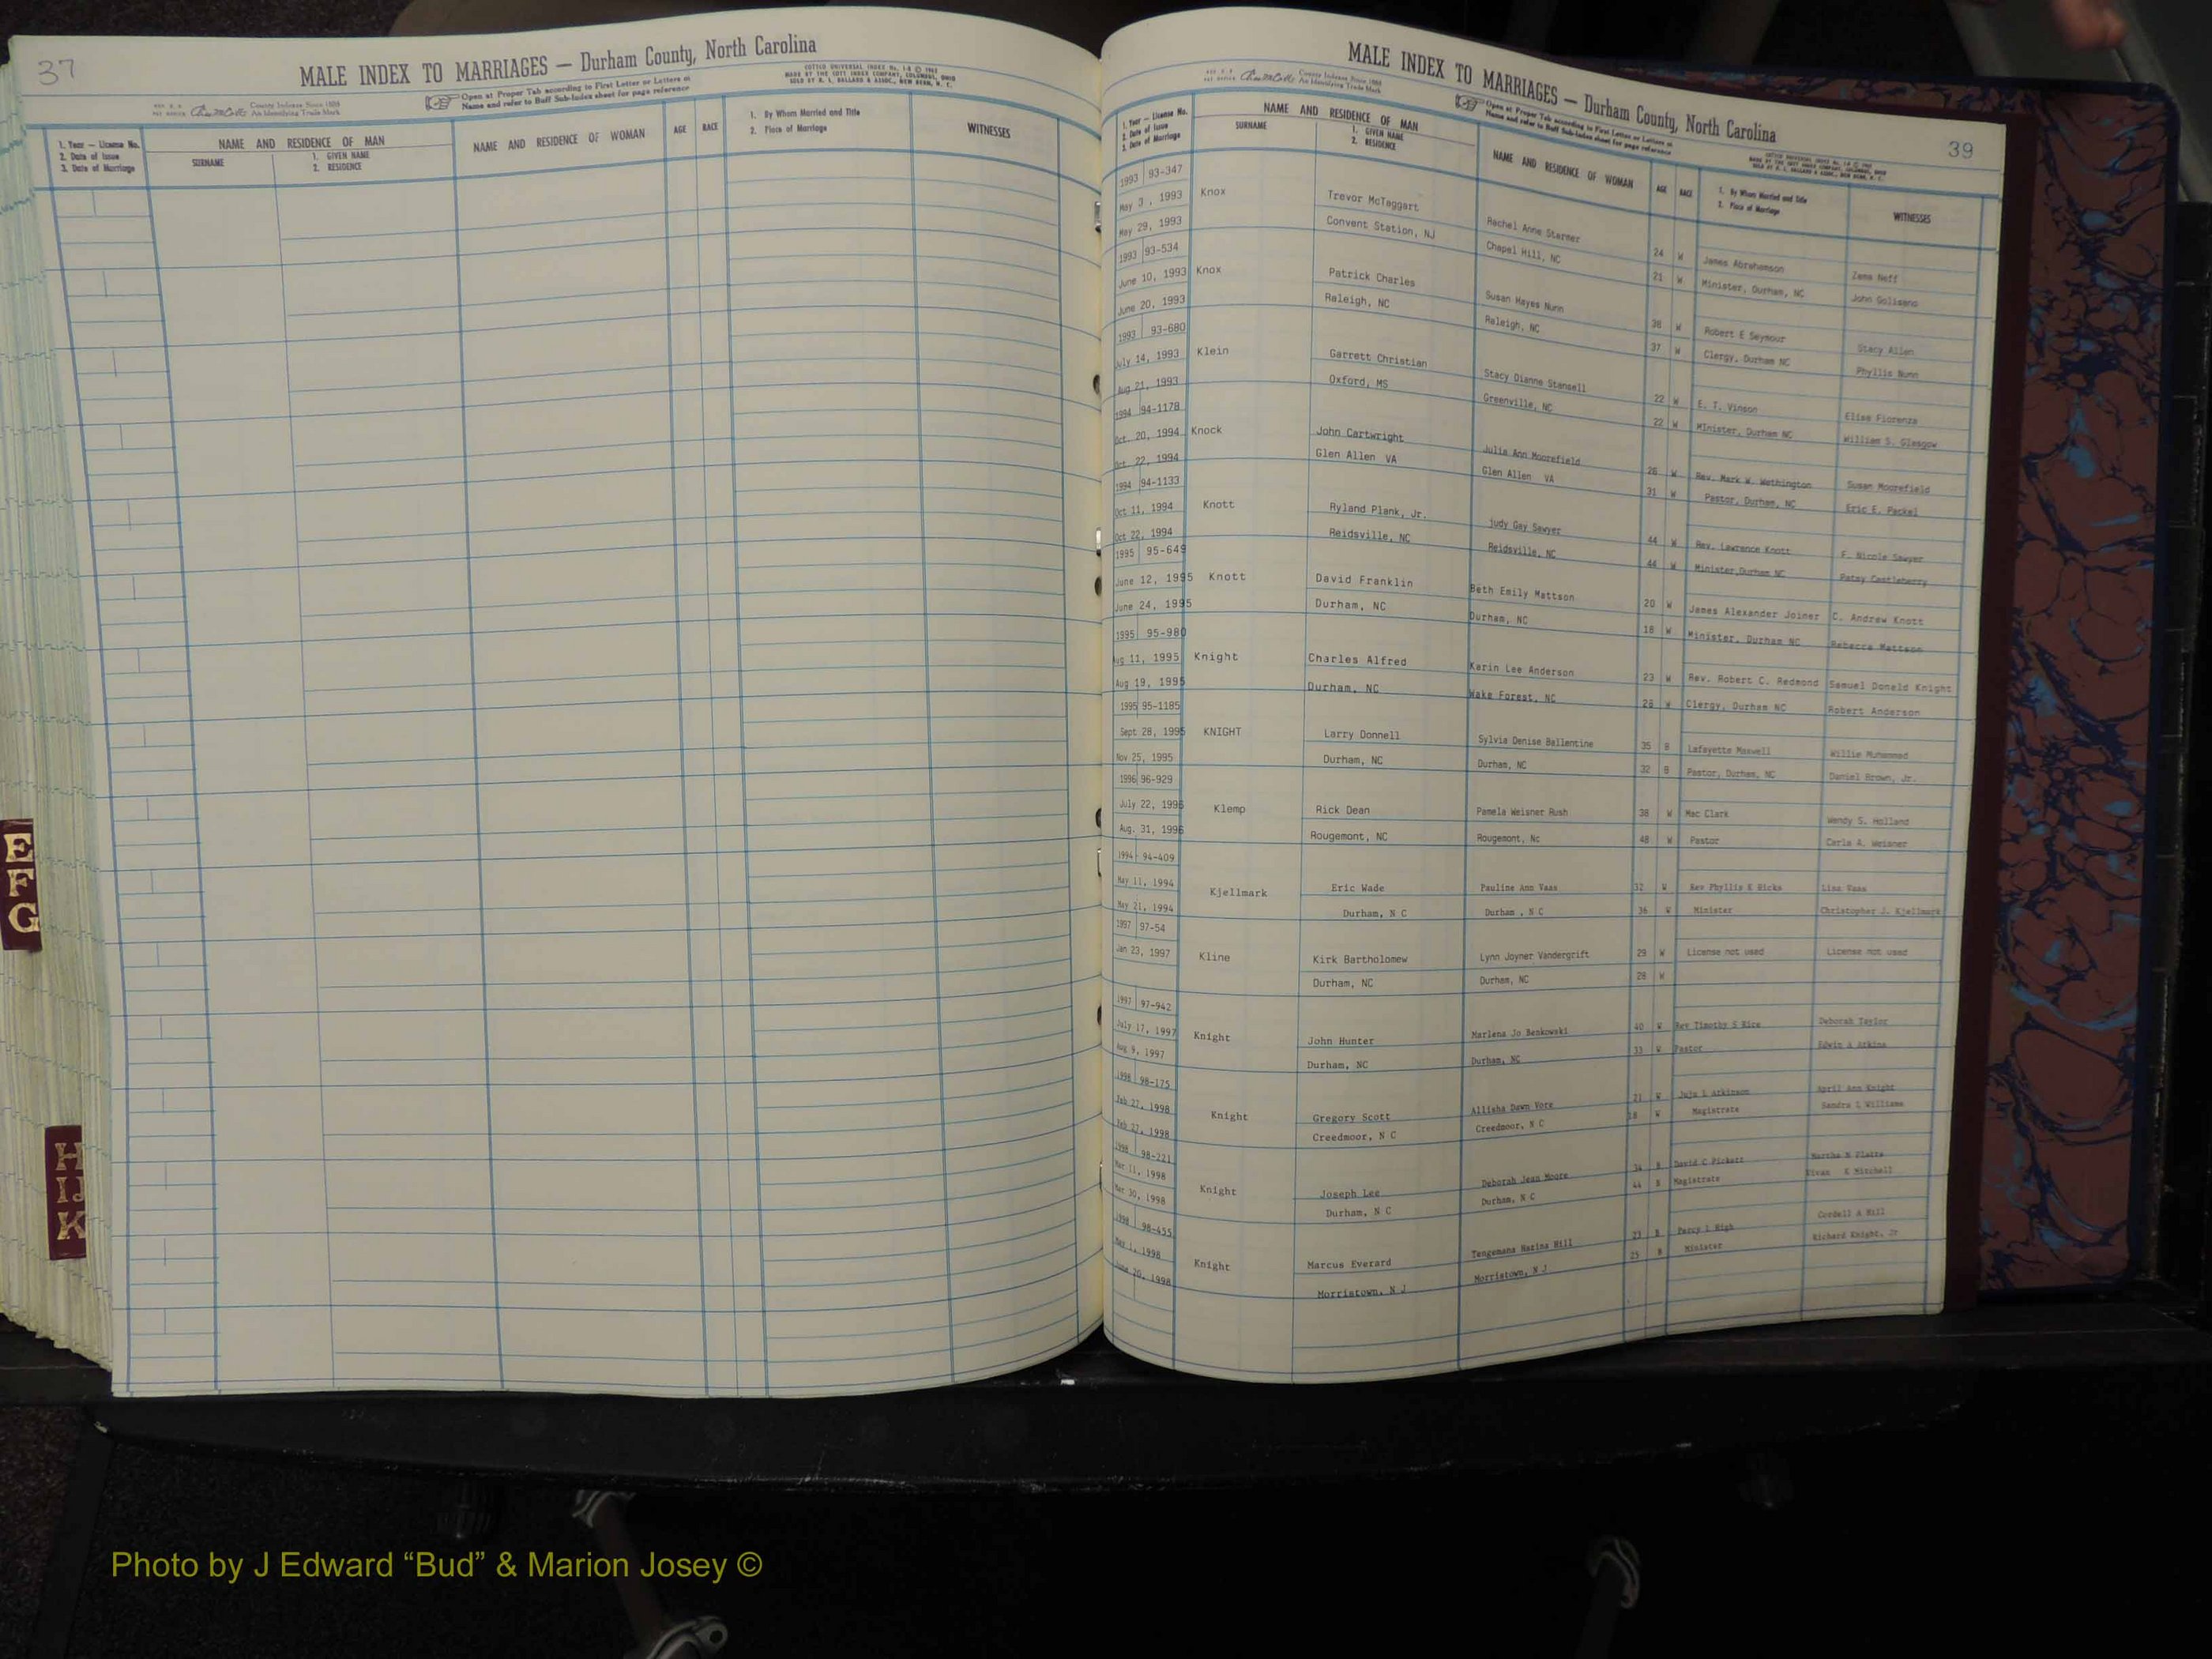 37
MALE INDEX TO MARRIAGES — Durham County, North Carolina
COTT'S UNIVERSAL INDEX No. 1-S © 1962
MADE BY THE COTT INDEX COMPANY, COLUMBUS, OHIO
SOLD BY R. L. BALLARD & ASSOC., NEW BERN, N. C.
County Indexes Since 1888
An Identifying Trade Mark
Open at Proper Tab according to First Letter or Letters of
Name and refer to Buff Sub-Index sheet for page reference
1. Year — License No.
2. Date of Issue
3. Date of Marriage
NAME AND RESIDENCE OF MAN
SURNAME
1. GIVEN NAME
2. RESIDENCE
NAME AND RESIDENCE OF WOMAN
AGE
RACE
1. By Whom Married and Title
2. Place of Marriage
WITNESSES
E
F
G
H
IJ
K
MALE INDEX TO MARRIAGES — Durham County, North Carolina
39
County Indexes Since 1888
An Identifying Trade Mark
Open at Proper Tab according to First Letter or Letters of
Name and refer to Buff Sub-Index sheet for page reference
1. Year — License No.
2. Date of Issue
3. Date of Marriage
NAME AND RESIDENCE OF MAN
SURNAME
1. GIVEN NAME
2. RESIDENCE
NAME AND RESIDENCE OF WOMAN
AGE
RACE
1. By Whom Married and Title
2. Place of Marriage
WITNESSES
1993 93-347
May 3, 1993 Knox Trevor McTaggart Rachel Anne Starmer 24 W James Abrahamson Zema Neff
May 29, 1993 Convent Station, NJ Chapel Hill, NC 21 W Minister, Durham, NC John Golisano
1993 93-534
June 10, 1993 Knox Patrick Charles Susan Hayes Nunn 38 W Robert E Seymour Stacy Allen
June 20, 1993 Raleigh, NC Raleigh, NC 37 W Clergy, Durham NC Phyllis Nunn
1993 93-680
July 14, 1993 Klein Garrett Christian Stacy Dianne Stansell 22 W E. T. Vinson Elise Fiorenza
Aug 21, 1993 Oxford, MS Greenville, NC 22 W Minister, Durham NC William S. Glasgow
1994 94-1178
Oct. 20, 1994 Knock John Cartwright Julia Ann Moorefield 26 W Rev. Mark W. Wethington Susan Moorefield
Oct. 22, 1994 Glen Allen VA Glen Allen VA 31 W Pastor, Durham, NC Eric E. Packel
1994 94-1133
Oct 11, 1994 Knott Ryland Plank, Jr. judy Gay Sawyer 44 W Rev. Lawrence Knott F. Nicole Sawyer
Oct 22, 1994 Reidsville, NC Reidsville, NC 44 W Minister, Durham NC Patsy Castleberry
1995 95-649
June 12, 1995 Knott David Franklin Beth Emily Mattson 20 W James Alexander Joiner C. Andrew Knott
June 24, 1995 Durham, NC Durham, NC 18 W Minister, Durham NC Rebecca Mattson
1995 95-980
Aug 11, 1995 Knight Charles Alfred Karin Lee Anderson 23 W Rev. Robert C. Redmond Samuel Donald Knight
Aug 19, 1995 Durham, NC Wake Forest, NC 26 W Clergy, Durham NC Robert Anderson
1995 95-1185
Sept 28, 1995 KNIGHT Larry Donnell Sylvia Denise Ballentine 35 B Lafayette Maxwell Willie Muhammad
Nov 25, 1995 Durham, NC Durham, NC 32 B Pastor, Durham, NC Daniel Brown, Jr.
1996 96-929
July 22, 1996 Klemp Rick Dean Pamela Weisner Rush 38 W Mac Clark Wendy S. Holland
Aug. 31, 1996 Rougemont, NC Rougemont, Nc 48 W Pastor Carla A. Weisner
1994 94-409
May 11, 1994 Kjellmark Eric Wade Pauline Ann Vaas 32 W Rev Phyllis K Ricks Lisa Vaas
May 21, 1994 Durham, N C Durham , N C 36 W Minister Christopher J. Kjellmark
1997 97-54
Jan 23, 1997 Kline Kirk Bartholomew Lynn Joyner Vandergrift 29 W License not used License not used
Durham, NC Durham, NC 28 W
1997 97-942
July 17, 1997 Knight John Hunter Marlena Jo Benkowski 40 W Rev Timothy S Rice Deborah Taylor
Aug 9, 1997 Durham, NC Durham, NC 33 W Pastor Edwin A Atkins
1998 98-175
Feb 27, 1998 Knight Gregory Scott Allisha Dawn Vore 21 W Atkinson April Ann Knight
Feb 27, 1998 Creedmoor, N C Creedmoor, N C 18 W Magistrate Sandra L Williams
1998 98-221
Mar 11, 1998 Knight Joseph Lee Deborah Jean Moore B David C Pickett Martha
Mar 30, 1998 Durham, N C Durham, N C 44 B Magistrate K Mitchell
1998 98-455
May 1, 1998 Knight Marcus Everard Tengemana Hazina Hill 23 B Percy L High Cordell A Hill
June 20, 1998 Morristown, N J Morristown, N J 25 B Minister Richard Knight, Jr
Photo by J Edward “Bud” & Marion Josey ©